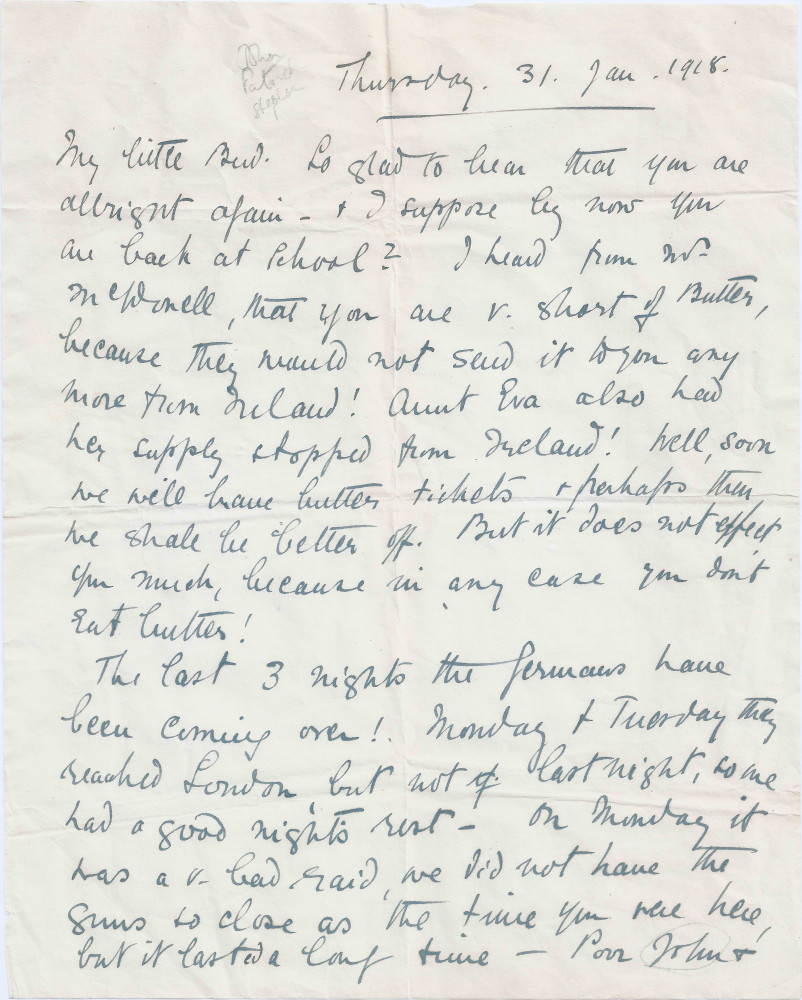 John
Patrick
Stephen
Thursday. 31. Jan. 1918.
My little Bud. So glad to hear that you are
allright again - & I suppose by now you
are back at School? I heard from Mrs
McDonell, that you are v. short of Butter,
because they would not send it to you any
more from Ireland! Aunt Eva also had
her supply stopped from Ireland! Well, soon
we will have butter tickets & perhaps then
we shall be better off. But it does not effect
you much, because in any case you don't
Eat butter!
The last 3 nights the Germans have
been coming over! Monday & Tuesday they
reached London, but not last night, so we
had a good night's rest - On Monday it
was a v. bad raid, we did not have the
guns so close as the time you were here,
but it lasted a long time - Poor John &